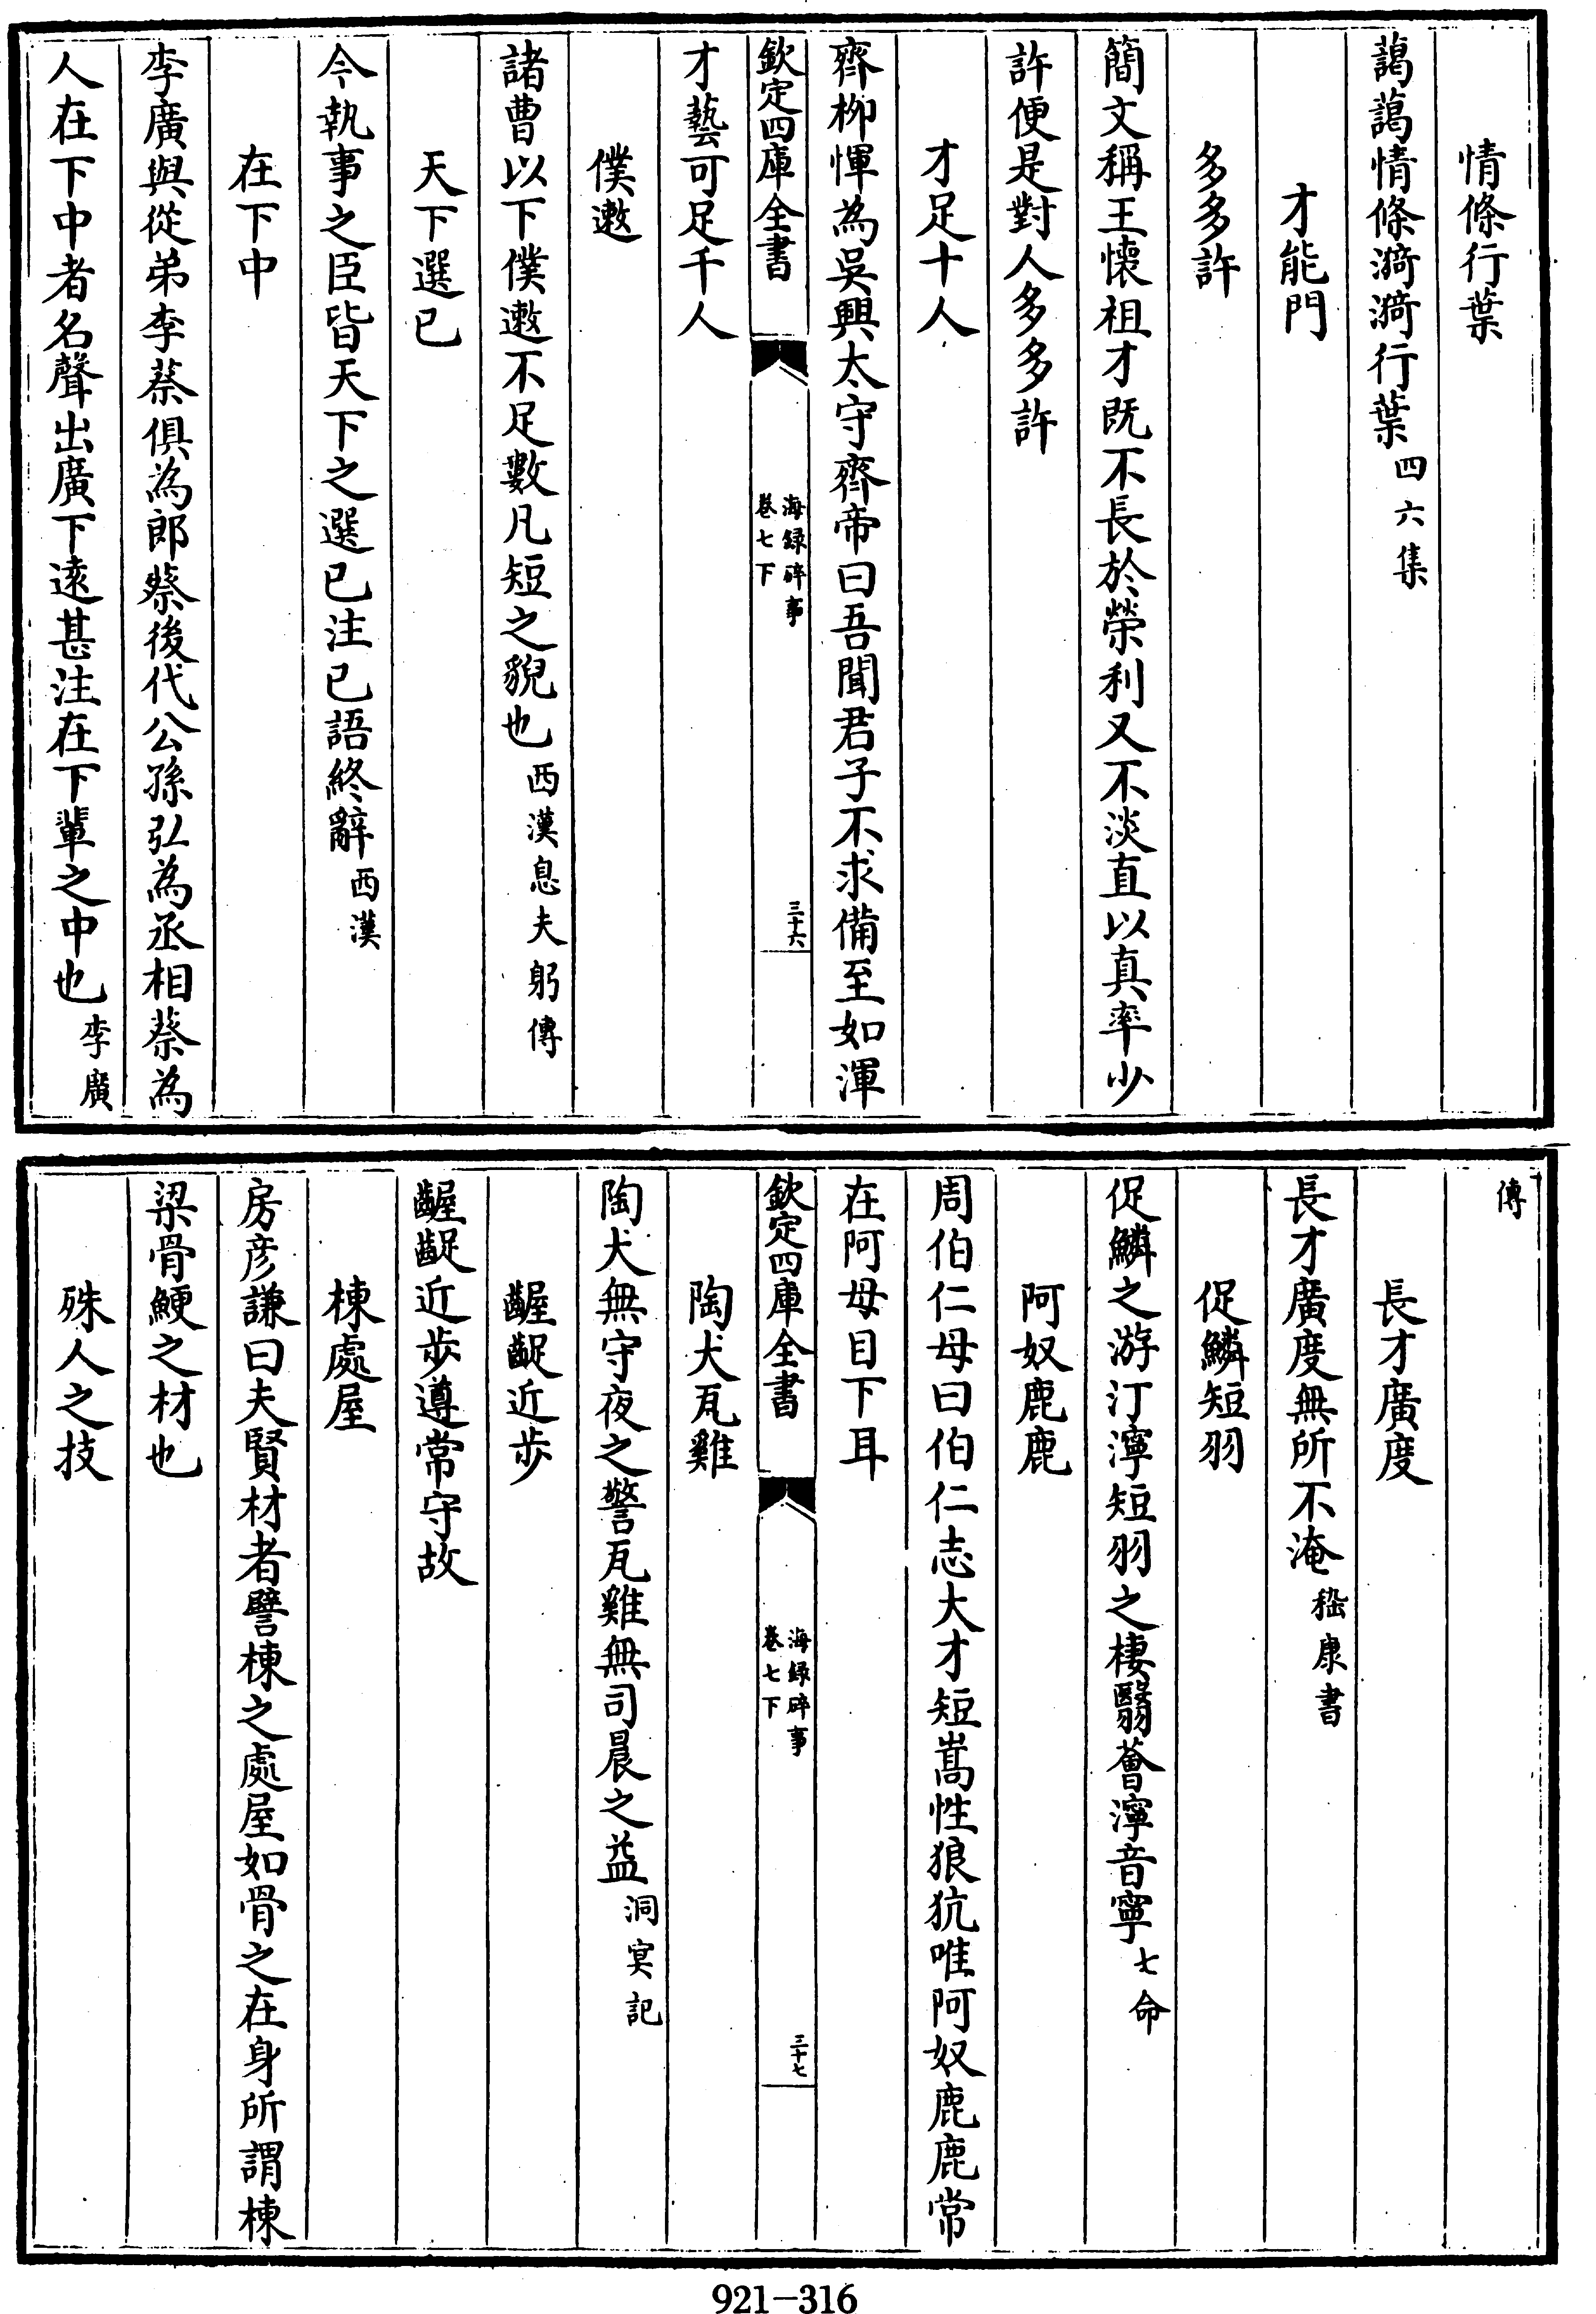 情條行葉
藹藹情條漪漪行葉四六集
才能門
多多許
簡文稱王懷祖才既不長於榮利又不淡直以真率少
許便是對人多多許
才足十人
齊柳惲為吳興太守齊帝曰吾聞君子不求備至如渾
欽定四庫全書
海録碎事
卷七下
三十六
才藝可足千人
僕遬
諸曹以下僕遬不足數凡短之貌也西漢息夫躬傳
天下選已
今執事之臣皆天下之選已注已語終辭西漢
在下中
李廣與從弟李蔡俱為郎蔡後代公孫弘為丞相蔡為
人在下中者名聲出廣下逺甚注在下輩之中也李廣
傳
長才廣度
長才廣度無所不淹嵇康書
促鱗短羽
促鱗之游汀濘短羽之棲翳薈濘音寧七命
阿奴鹿鹿
周伯仁母曰伯仁志大才短嵩性狼犺唯阿奴鹿鹿常
在阿母目下耳
欽定四庫全書
海録碎事
卷七下
三十七
陶犬瓦雞
陶犬無守夜之警瓦雞無司晨之益洞冥記
齷齪近歩
齷齪近歩遵常守故
棟處屋
房彦謙曰夫賢材者譬棟之處屋如骨之在身所謂棟
梁骨鯁之材也
殊人之技
921-316